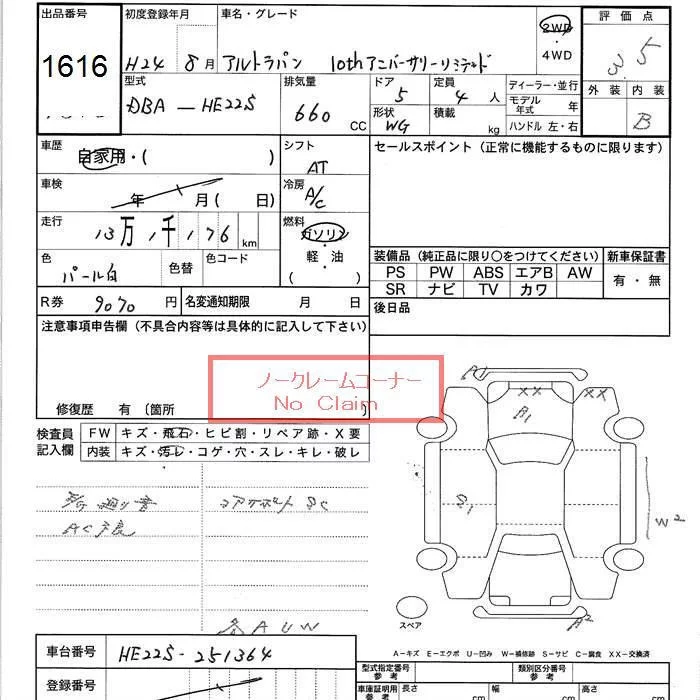 出品番号 初度登録年月 車名・グレード 評価点
1616 H24 8月 アルトラパン 10thアニバーサリーリミテッド 2WD・4WD 3.5
型式 排気量 ドア 定員 ディーラー・並行 外装 内装
DBA-HE22S 660 CC 5 4人 モデル年式 年 B
形状 WG 積載 kg ハンドル 左・右
車歴 自家用・( ) シフト AT セールスポイント (正常に機能するものに限ります)
車検 年 月( 日) 冷房 A/C
走行 13万 1千 176 km 燃料 ガソリン・軽・油 ( )
色 パール白 色替 色コード 装備品 (純正品に限り○をつけてください) 新車保証書
PS PW ABS エアB AW 有・無
SR ナビ TV カワ
R券 9070円 名変通知期限 月 日 後日品
注意事項申告欄 (不具合内容等は具体的に記入して下さい)
ノークレームコーナー
No Claim
修復歴 有 (箇所 )
検査員記入欄 FW キズ・飛石・ヒビ割・リペア跡・X要
内装 キズ・汚レ・コゲ・穴・スレ・キレ・破レ
コアサポート SC
AC
A U W
A1
XX XX
B1
W2
A2
スペア
A-キズ E-エクボ U-凹み W-補修跡 S-サビ C-腐食 XX-交換済
車台番号 HE22S-251364
登録番号
型式指定番号 参考 類別区分番号 参考
車庫証明用 参考 長さ cm 幅 cm 高さ cm